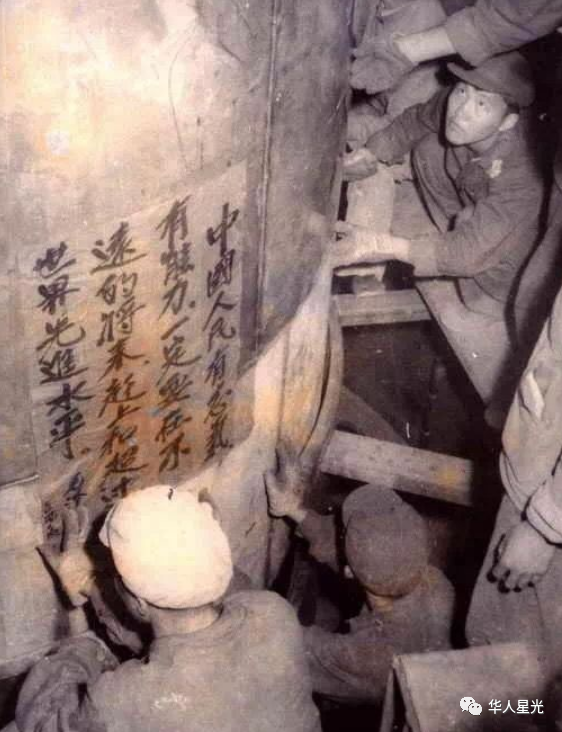 中國人民有志氣
有能力、一定要在不
遠的将来、赶上和超过
世界先進水平、
华人星光